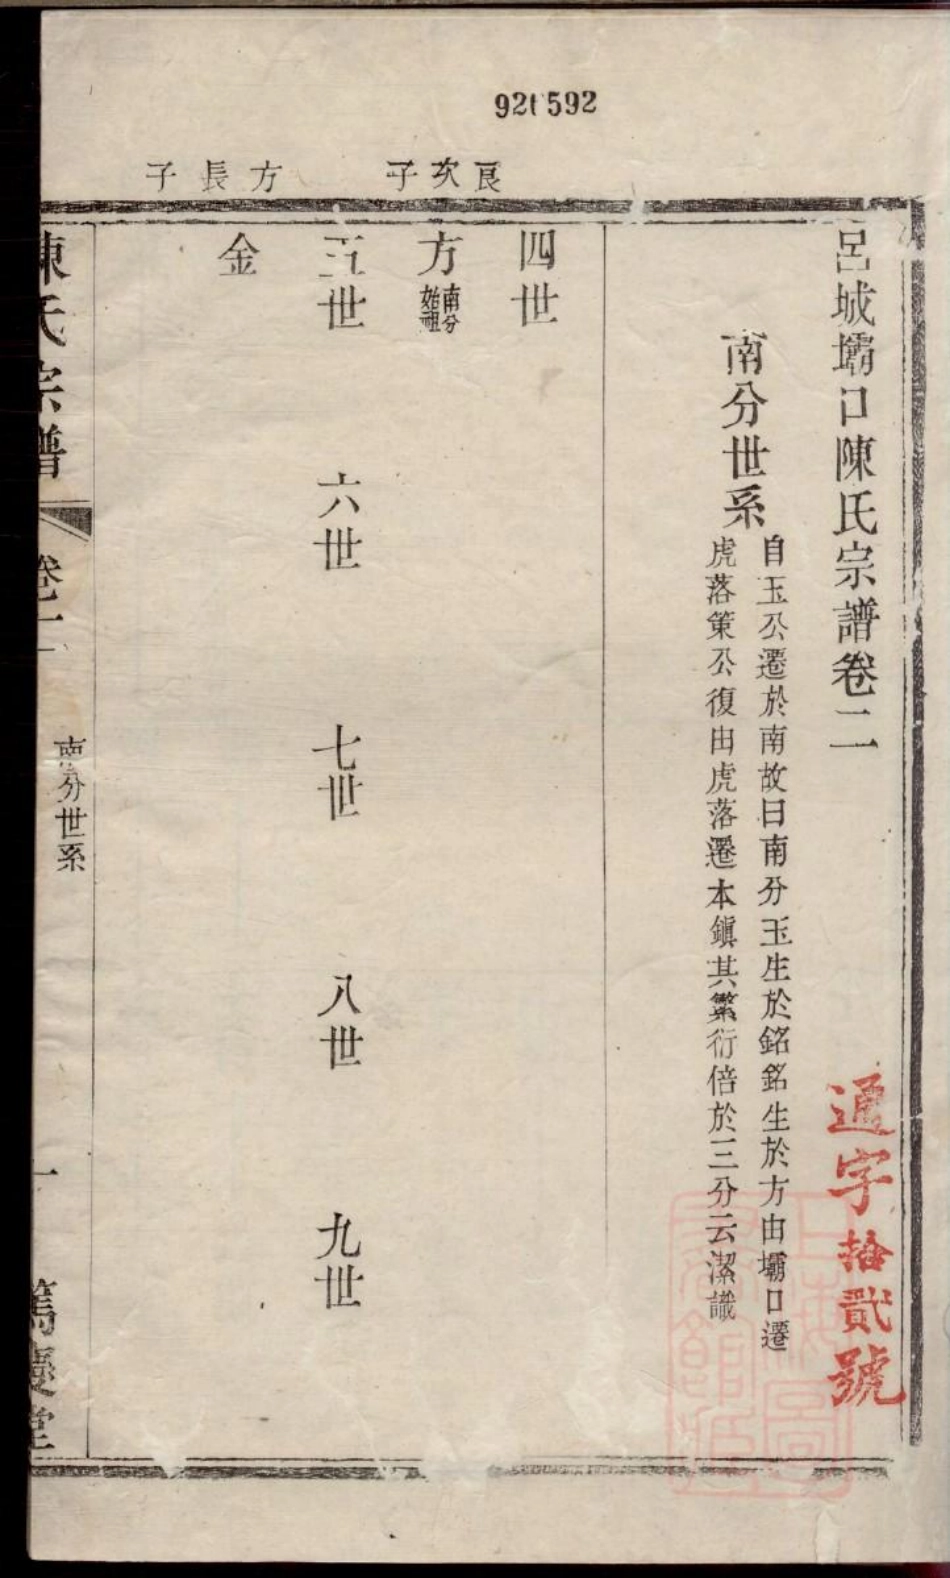 921592
良次子
方長子
呂城壩口陳氏宗譜卷二
通字拾貳號
南分世系
自玉公遷於南故曰南分玉生於銘銘生於方由壩口遷
虎落策公復由虎落遷本鎭其繁衍倍於三分云潔識
四世
方
南分
始祖
五世
六世
七世
八世
九世
金
陳氏宗譜
卷二
南分世系
一
篤慶堂